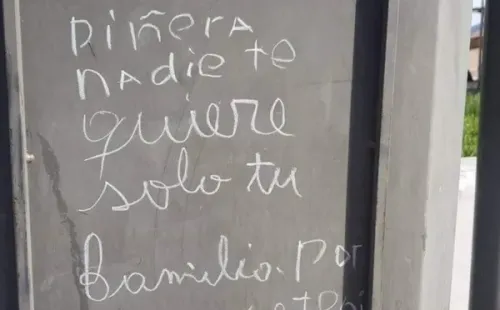 Piñera
nadie te
quiere
solo tu
familia. Por